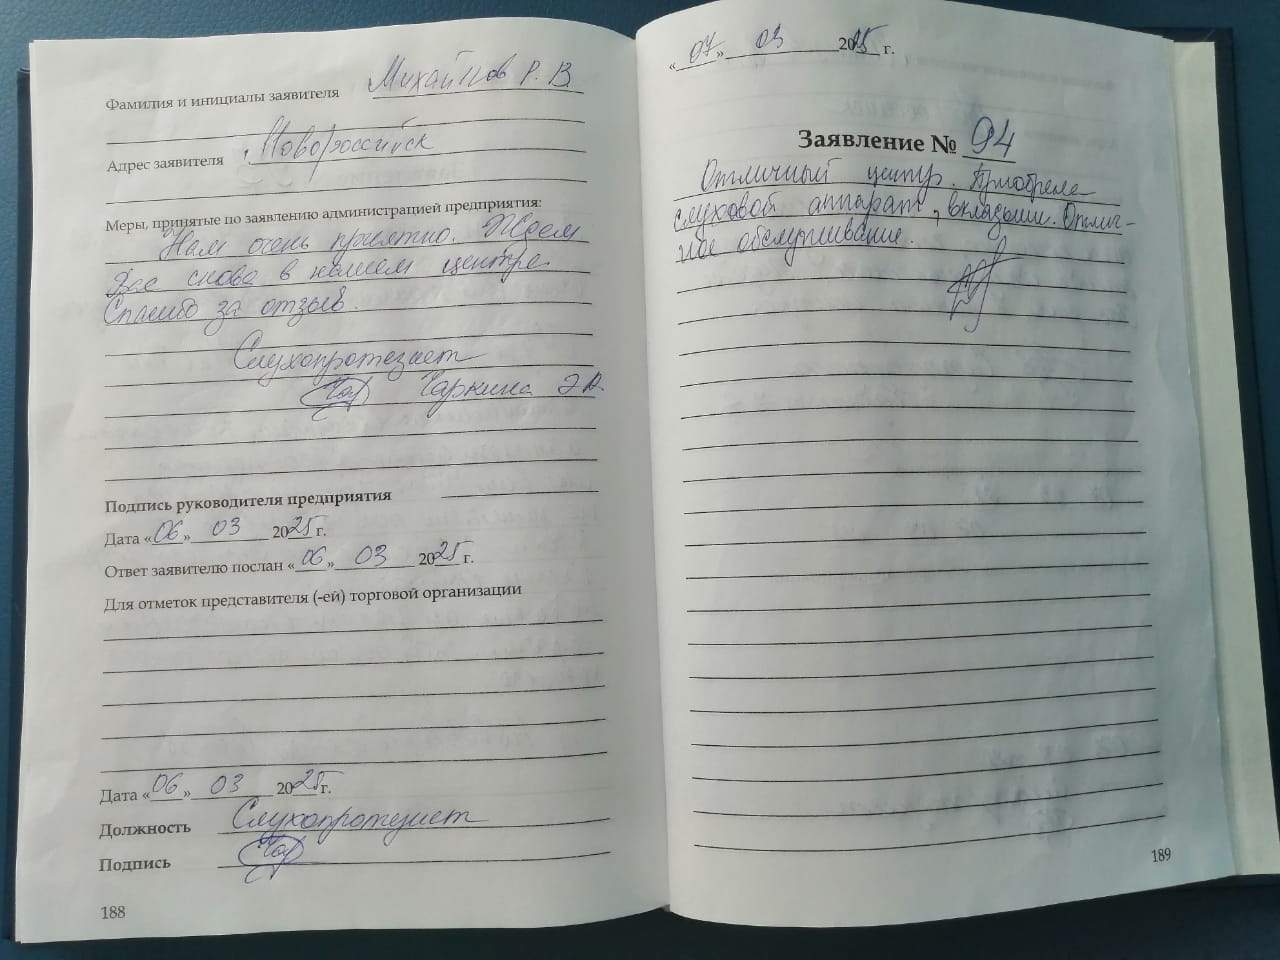 Фамилия и инициалы заявителя Михайлов Р. В.
Адрес заявителя г. Новороссийск
Меры, принятые по заявлению администрацией предприятия:
Нам очень приятно. Ждем
Вас снова в нашем центре.
Спасибо за отзыв.
Слухопротезист
Чаркина Э А.
Подпись руководителя предприятия
Дата «06» 03 2025 г.
Ответ заявителю послан «06» 03 2025 г.
Для отметок представителя (-ей) торговой организации
Дата «06» 03 2025 г.
Должность Слухопротезист
Подпись
188
«07» 03 2025 г.
Заявление № 94
Отличный центр. Приобрела
слуховой аппарат, вкладыши. Отлич-
ное обслуживание.
189